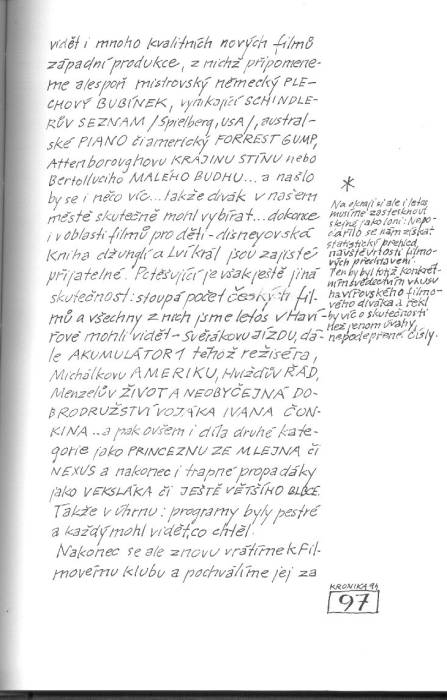 vidět i mnoho kvalitních nových filmů
západní produkce, z nichž připomene-
me alespoň mistrovský německý PLE-
CHOVÝ BUBÍNEK, vynikající SCHINDLE-
RŮV SEZNAM /Spielberg, USA/, austral-
ské PIANO či americký FORREST GUMP,
Attenboroughovu KRAJINU STÍNU nebo
Bertollucího MALÉHO BUDHU... a našlo
by se i něco víc... Takže divák v našem
městě skutečně mohl vybírat... dokonce
i v oblasti filmů pro děti - disneyovská
Kniha džunglí a Lví král jsou zajisté
přijatelné. Potěšující je však ještě jiná
skutečnost: stoupá počet českých fil-
mů a všechny z nich jsme letos v Haví-
řově mohli vidět - Svěrákovu JÍZDU, dá-
le AKUMULÁTOR 1 téhož režiséra,
Michálkovu AMERIKU, Hvížďův ŘÁD,
Menzelův ŽIVOT A NEOBYČEJNÁ DO-
BRODRUŽSTVÍ VOJÁKA IVANA ČON-
KINA... a pak ovšem i díla druhé kate-
gorie jako PRINCEZNU ZE MLEJNA či
NEXUS a nakonec i trapné propadáky
jako VEKSLÁKA či JEŠTĚ VĚTŠÍHO BLBCE.
Takže v úhrnu: programy byly pestré
a každý mohl vidět, co chtěl.
Nakonec se ale znovu vrátíme k Fil-
movému klubu a pochválíme jej za
*
Na okraji si ale i letos
musíme zostesknout
stejně jako loni: Nepo-
dařilo se nám získat
statistický přehled
návštěvnosti filmo-
vých představení.
Ten by byl totiž konkrét-
ním svědectvím vkusu
havířovského filmo-
vého diváka a řekl
by víc o skutečnosti
než jenom úvahy,
nepodepřené čísly.
KRONIKA 94
97